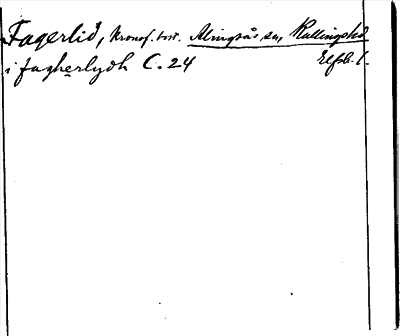 Fagerlid, Kronof. torp. Alingsås sn, Kullings hd
i fagherlydh C. 24 Elfsb. l.